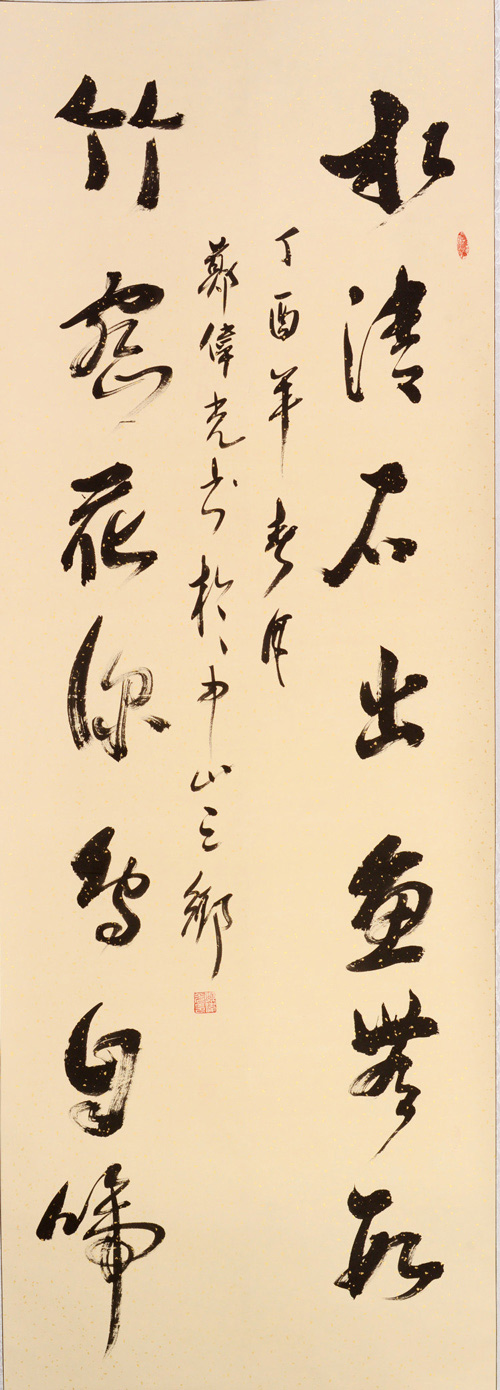 水清石出魚無數
丁酉年春月
鄭偉光書於中山三鄉
竹密花深鳥自啼